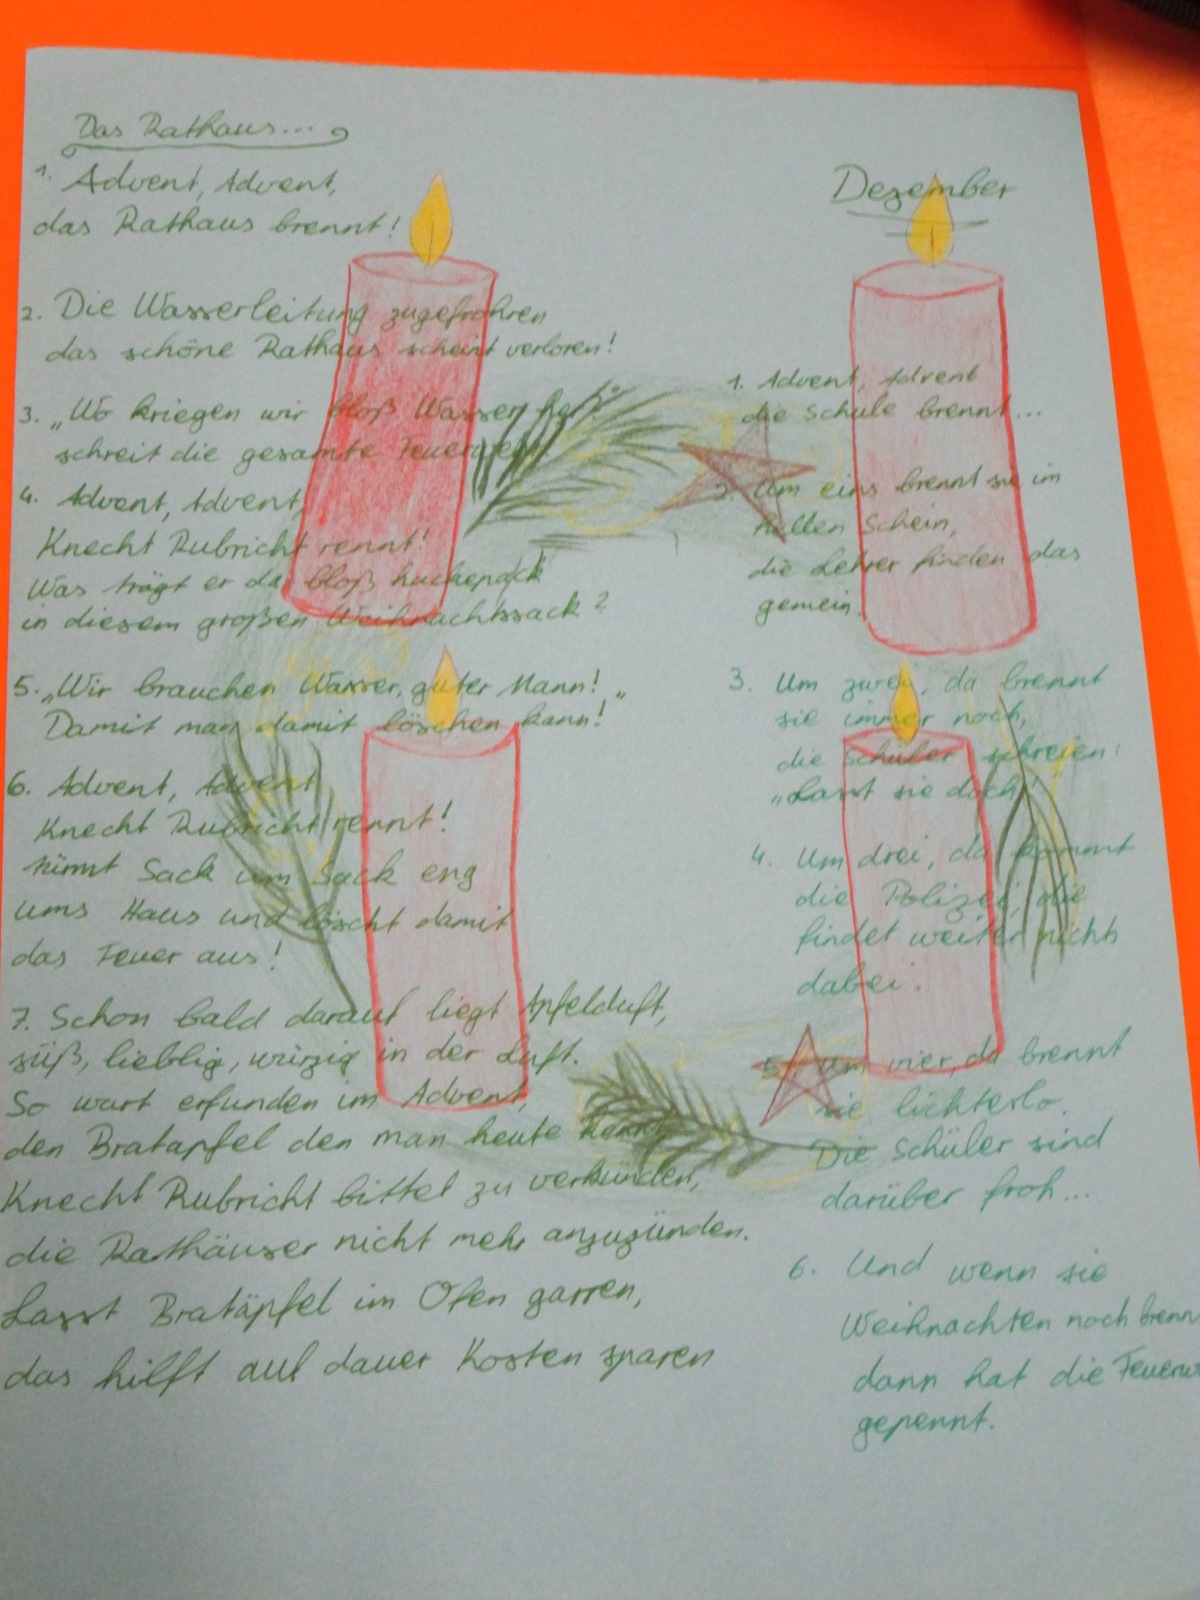 Das Rathaus...
1. Advent, Advent,
das Rathaus brennt!
2. Die Wasserleitung zugefrohren
das schöne Rathaus scheint verloren!
3. „Wo kriegen wir bloß Wasser her?"
schreit die gesamte Feuerwehr.
4. Advent, Advent,
Knecht Rubricht rennt!
Was trägt er da bloß huckepack
in diesem großen Weihnachtssack?
5. „Wir brauchen Wasser, guter Mann!"
Damit man damit löschen kann!
6. Advent, Advent
Knecht Rubricht rennt!
türmt Sack um Sack eng
ums Haus und löscht damit
das Feuer aus!
7. Schon bald darauf liegt Apfelduft,
süß, lieblig, würzig in der Luft.
So wart erfunden im Advent,
den Bratapfel den man heute kennt,
Knecht Rubricht bittet zu verkünden,
die Rathäuser nicht mehr anzuzünden.
Lasst Bratäpfel im Ofen garren,
das hilft auf dauer Kosten sparen
Dezember
1. Advent, Advent
die Schule brennt...
2. Um eins brennt sie im
hellen Schein,
die Lehrer finden das
gemein.
3. Um zwei, da brennt
sie immer noch,
die Schüler schreien:
„Lasst sie doch!
4. Um drei, da kommt
die Polizei, die
findet weiter nichts
dabei.
5. Um vier, da brennt
sie lichterlo.
Die Schüler sind
darüber froh...
6. Und wenn sie
Weihnachten noch brenn
dann hat die Feuerw
gepennt.